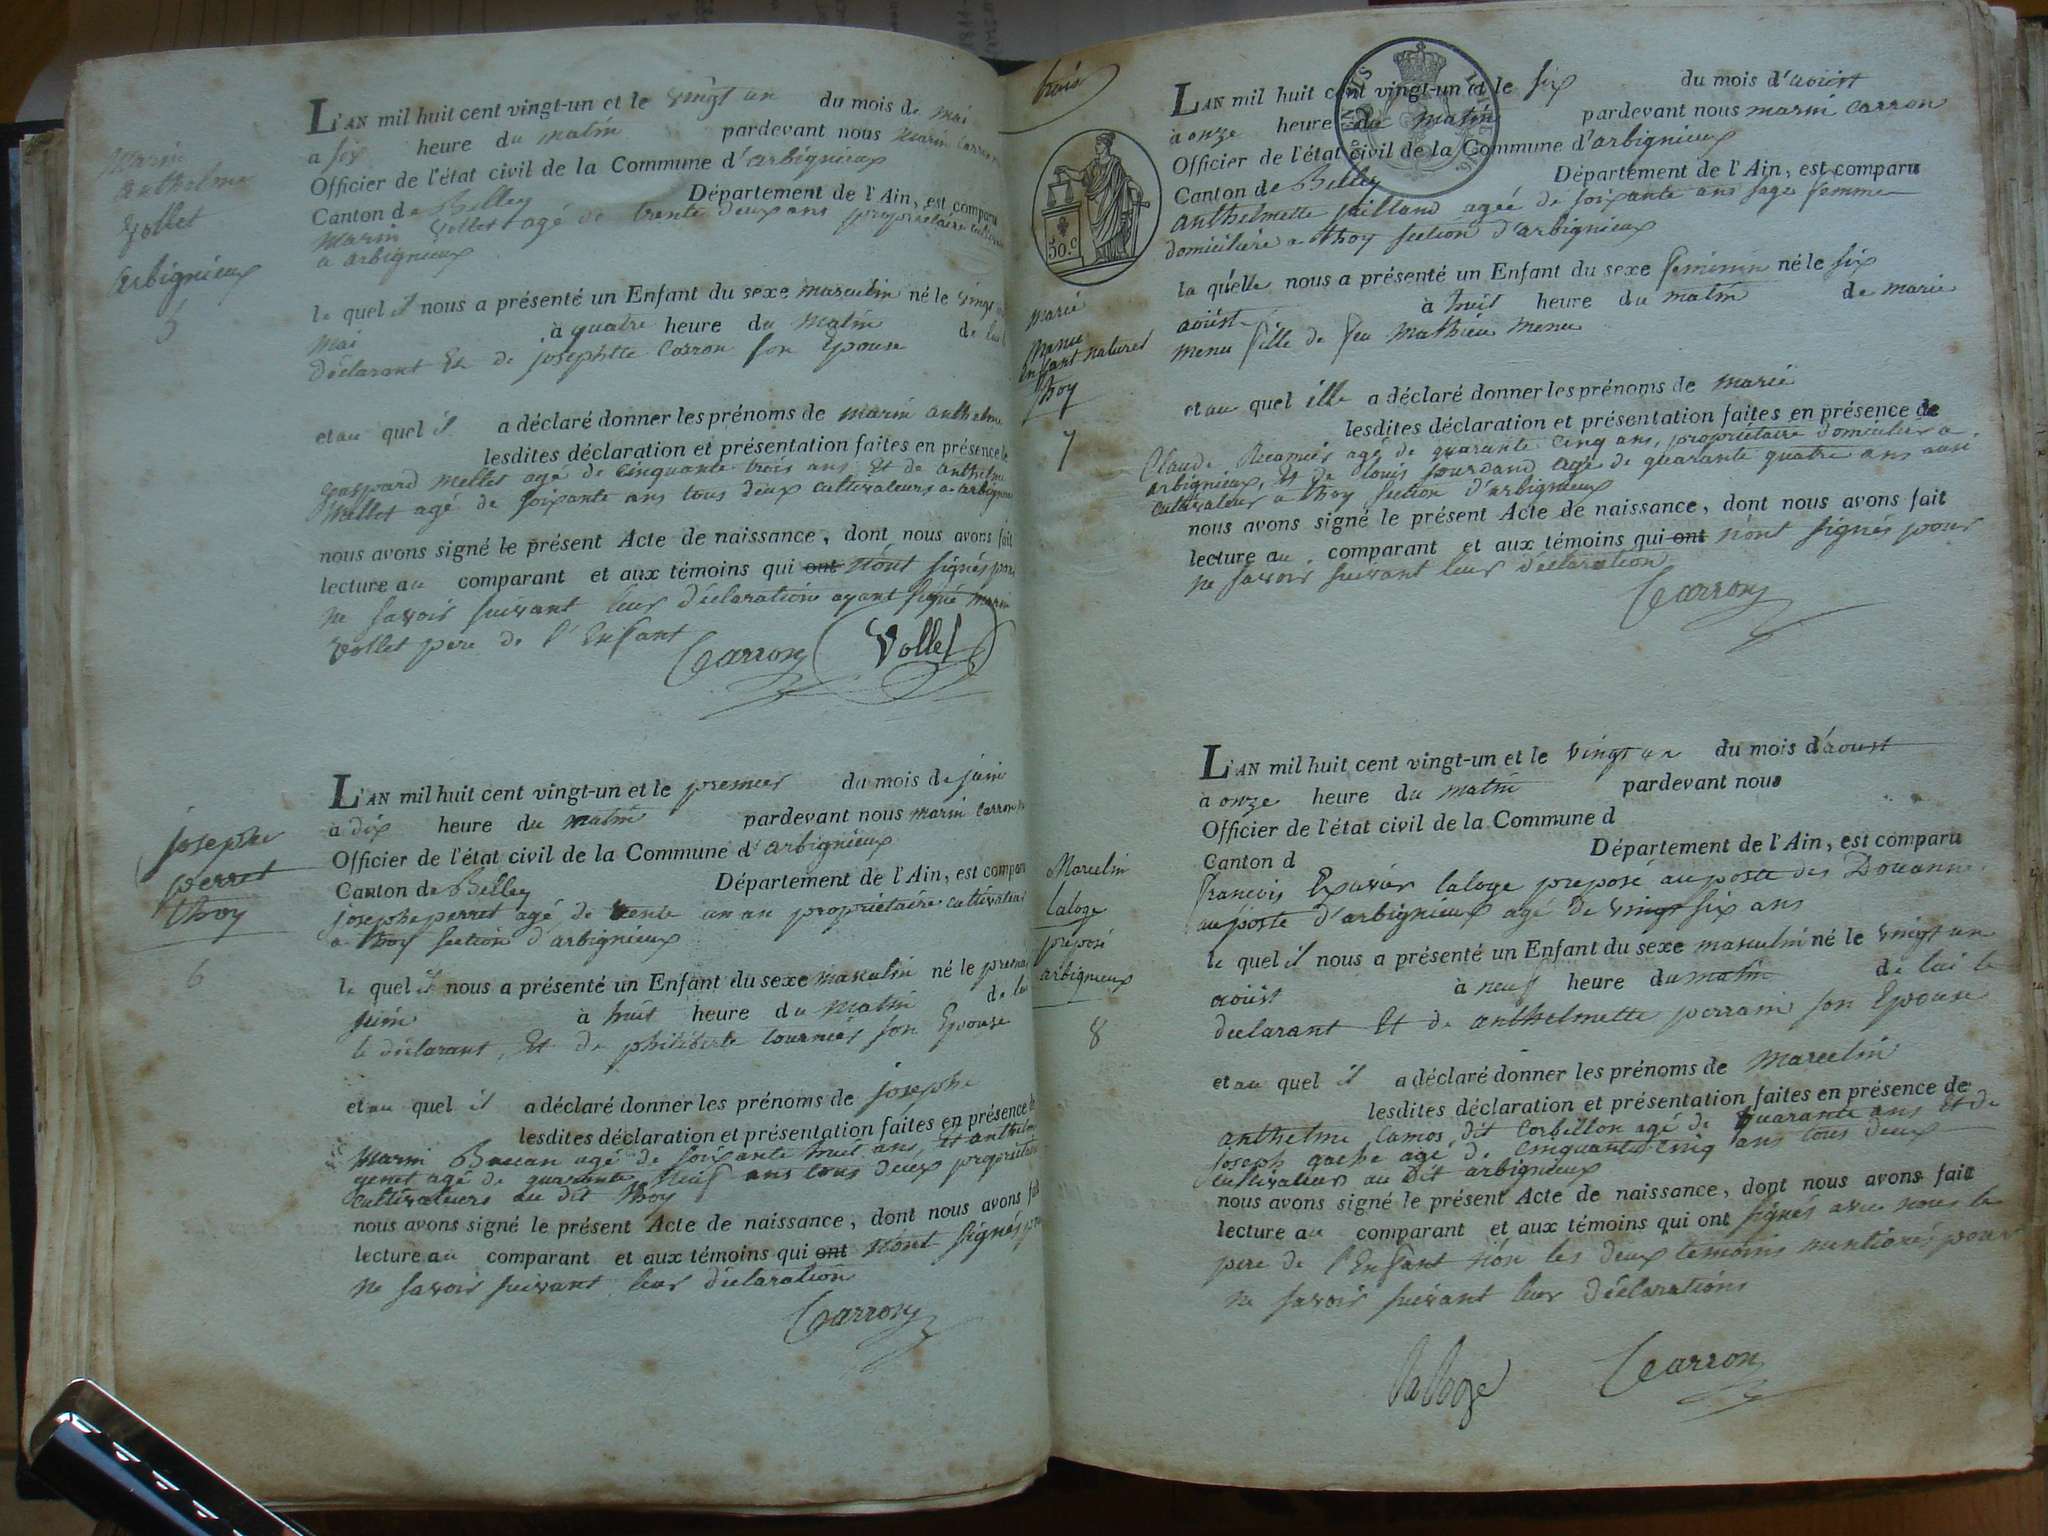 Marin
anthelme
Vollet
arbignieux
5
L'AN mil huit cent vingt-un et le vingt un du mois de mai
à six heure du matin pardevant nous marin carron
Officier de l'état civil de la Commune d'arbignieux
Canton de Belley Département de l'Ain, est comparu
Marin Vollet agé de trente deux ans propriétaire
a arbignieux
le quel il nous a présenté un Enfant du sexe masculin né le vingt un
mai à quatre heure du matin de lui l
déclarant Et de josephtte Carron son Epouse
et au quel il a déclaré donner les prénoms de marin anthelme
lesdites déclaration et présentation faites en présence de
gaspard mellet agé de cinquante trois ans Et de anthelme
Mellet agé de soixante ans tous deux cultivateurs a arbignieux
nous avons signé le présent Acte de naissance, dont nous avons fait
lecture au comparant et aux témoins qui ont n'ont signés pour
ne savoir suivant leur déclaration ayant signé marin
vollet pere de l'Enfant
Carron Vollet
josephe
perret
thoy
6
L'AN mil huit cent vingt-un et le premier du mois de juin
à dix heure du matin pardevant nous marin carron
Officier de l'état civil de la Commune d'arbignieux
Canton de Belley Département de l'Ain, est comparu
josephe perret agé de trente un an propriétaire cultivateur
a thoy section d'arbignieux
le quel il nous a présenté un Enfant du sexe masculin né le premier
juin à huit heure du matin de lui
le déclarant, Et de philiberte tournier son Epouse
et au quel il a déclaré donner les prénoms de josephe
lesdites déclaration et présentation faites en présence de
Marin agé de soixante huit ans, Et anthelme
genet agé de quarante neuf ans tous deux propriétaires
cultivateurs au dit thoy
nous avons signé le présent Acte de naissance, dont nous avons fait
lecture au comparant et aux témoins qui ont n'ont signés pour
ne savoir suivant leur déclaration
Carron
trois
50.c
marie
menu
enfant naturel
thoy
7
L'AN mil huit cent vingt-un et le six du mois d'aoûst
à onze heure du matin pardevant nous marin carron
Officier de l'état civil de la Commune d'arbignieux
Canton de Belley Département de l'Ain, est comparu
anthelmette agée de soixante ans sage femme
domiciliée a thoy section d'arbignieux
la quelle nous a présenté un Enfant du sexe feminin né le six
aoûst à huit heure du matin de marie
menu fille de feu mathieu menu
et au quel elle a déclaré donner les prénoms de marie
lesdites déclaration et présentation faites en présence de
Claude Recamier agé de quarante cinq ans, propriétaire domicilié a
arbignieux, Et de louis jourdand agé de quarante quatre ans aussi
cultivateur a thoy section d'arbignieux
nous avons signé le présent Acte de naissance, dont nous avons fait
lecture au comparant et aux témoins qui ont n'ont signés pour
ne savoir suivant leur déclaration
Carron
Marcelin
laloge
préposé
arbignieux
8
L'AN mil huit cent vingt-un et le vingt un du mois d'aoust
à onze heure du matin pardevant nous
Officier de l'état civil de la Commune d
Canton d Département de l'Ain, est comparu
francois Exavier laloge preposé au poste des Douannes
au poste d'arbignieux agé de vingt six ans
le quel il nous a présenté un Enfant du sexe masculin né le vingt un
aoûst à neuf heure du matin de lui le
declarant Et de anthelmette perrain son Epouse
et au quel il a déclaré donner les prénoms de Marcelin
lesdites déclaration et présentation faites en présence de
anthelme Camos dit Corbillon agé de quarante ans Et de
joseph gache agé de cinquante cinq ans tous deux
cultivateur au dit arbignieux
nous avons signé le présent Acte de naissance, dont nous avons fait
lecture au comparant et aux témoins qui ont signés avec nous le
pere de l'Enfant non les deux temoins mentionés pour
ne savoir suivant leur déclarations
laloge Carron